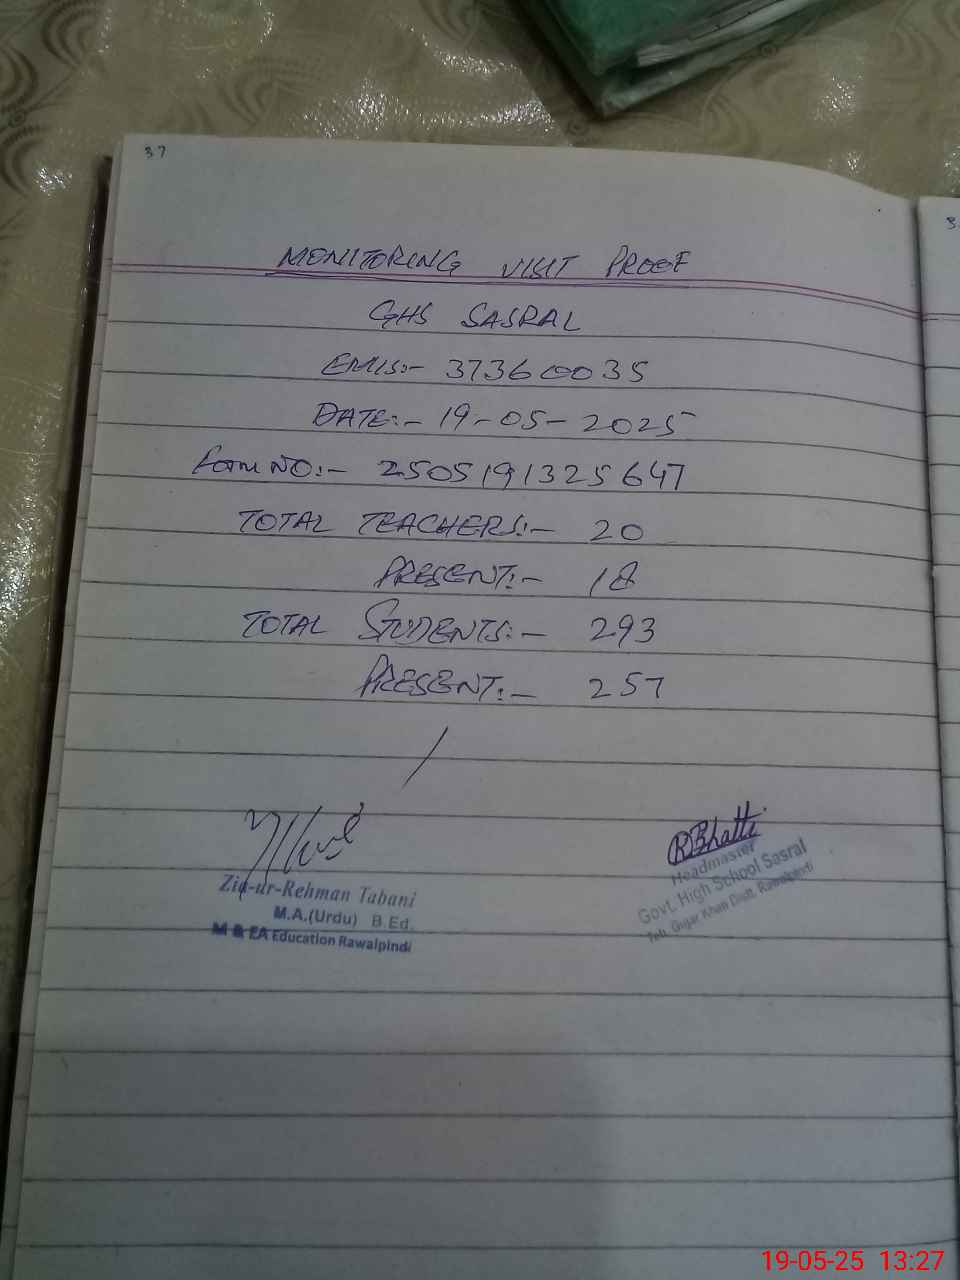 37
MONITORING VISIT PROOF
GHS SASRAL
EMIS:- 37360035
DATE:- 19-05-2025
Form NO:- 2505191325647
TOTAL TEACHERS:- 20
PRESENT:- 18
TOTAL STUDENTS:- 293
PRESENT:- 257
Zia-ur-Rehman Tabani
M.A.(Urdu) B.Ed.
M & EA Education Rawalpindi
RBhatti
Headmaster
Govt. High School Sasral
Teh. Gujar Khan Distt. Rawalpindi
19-05-25 13:27